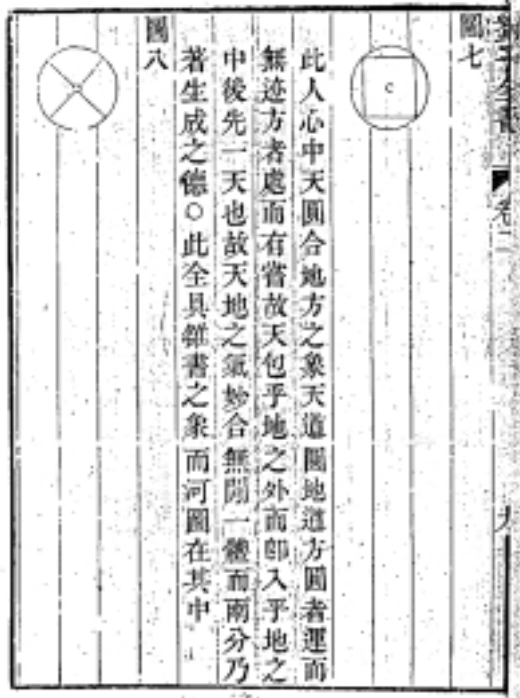 劉子全書
卷二
九
圖七
此人心中天圓合地方之象天道圓地道方圓者運而
無迹方者處而有嘗故天包乎地之外而卽入乎地之
中後先一天也故天地之氣妙合無間一體而兩分乃
著生成之德○此全具雒書之象而河圖在其中
圖八